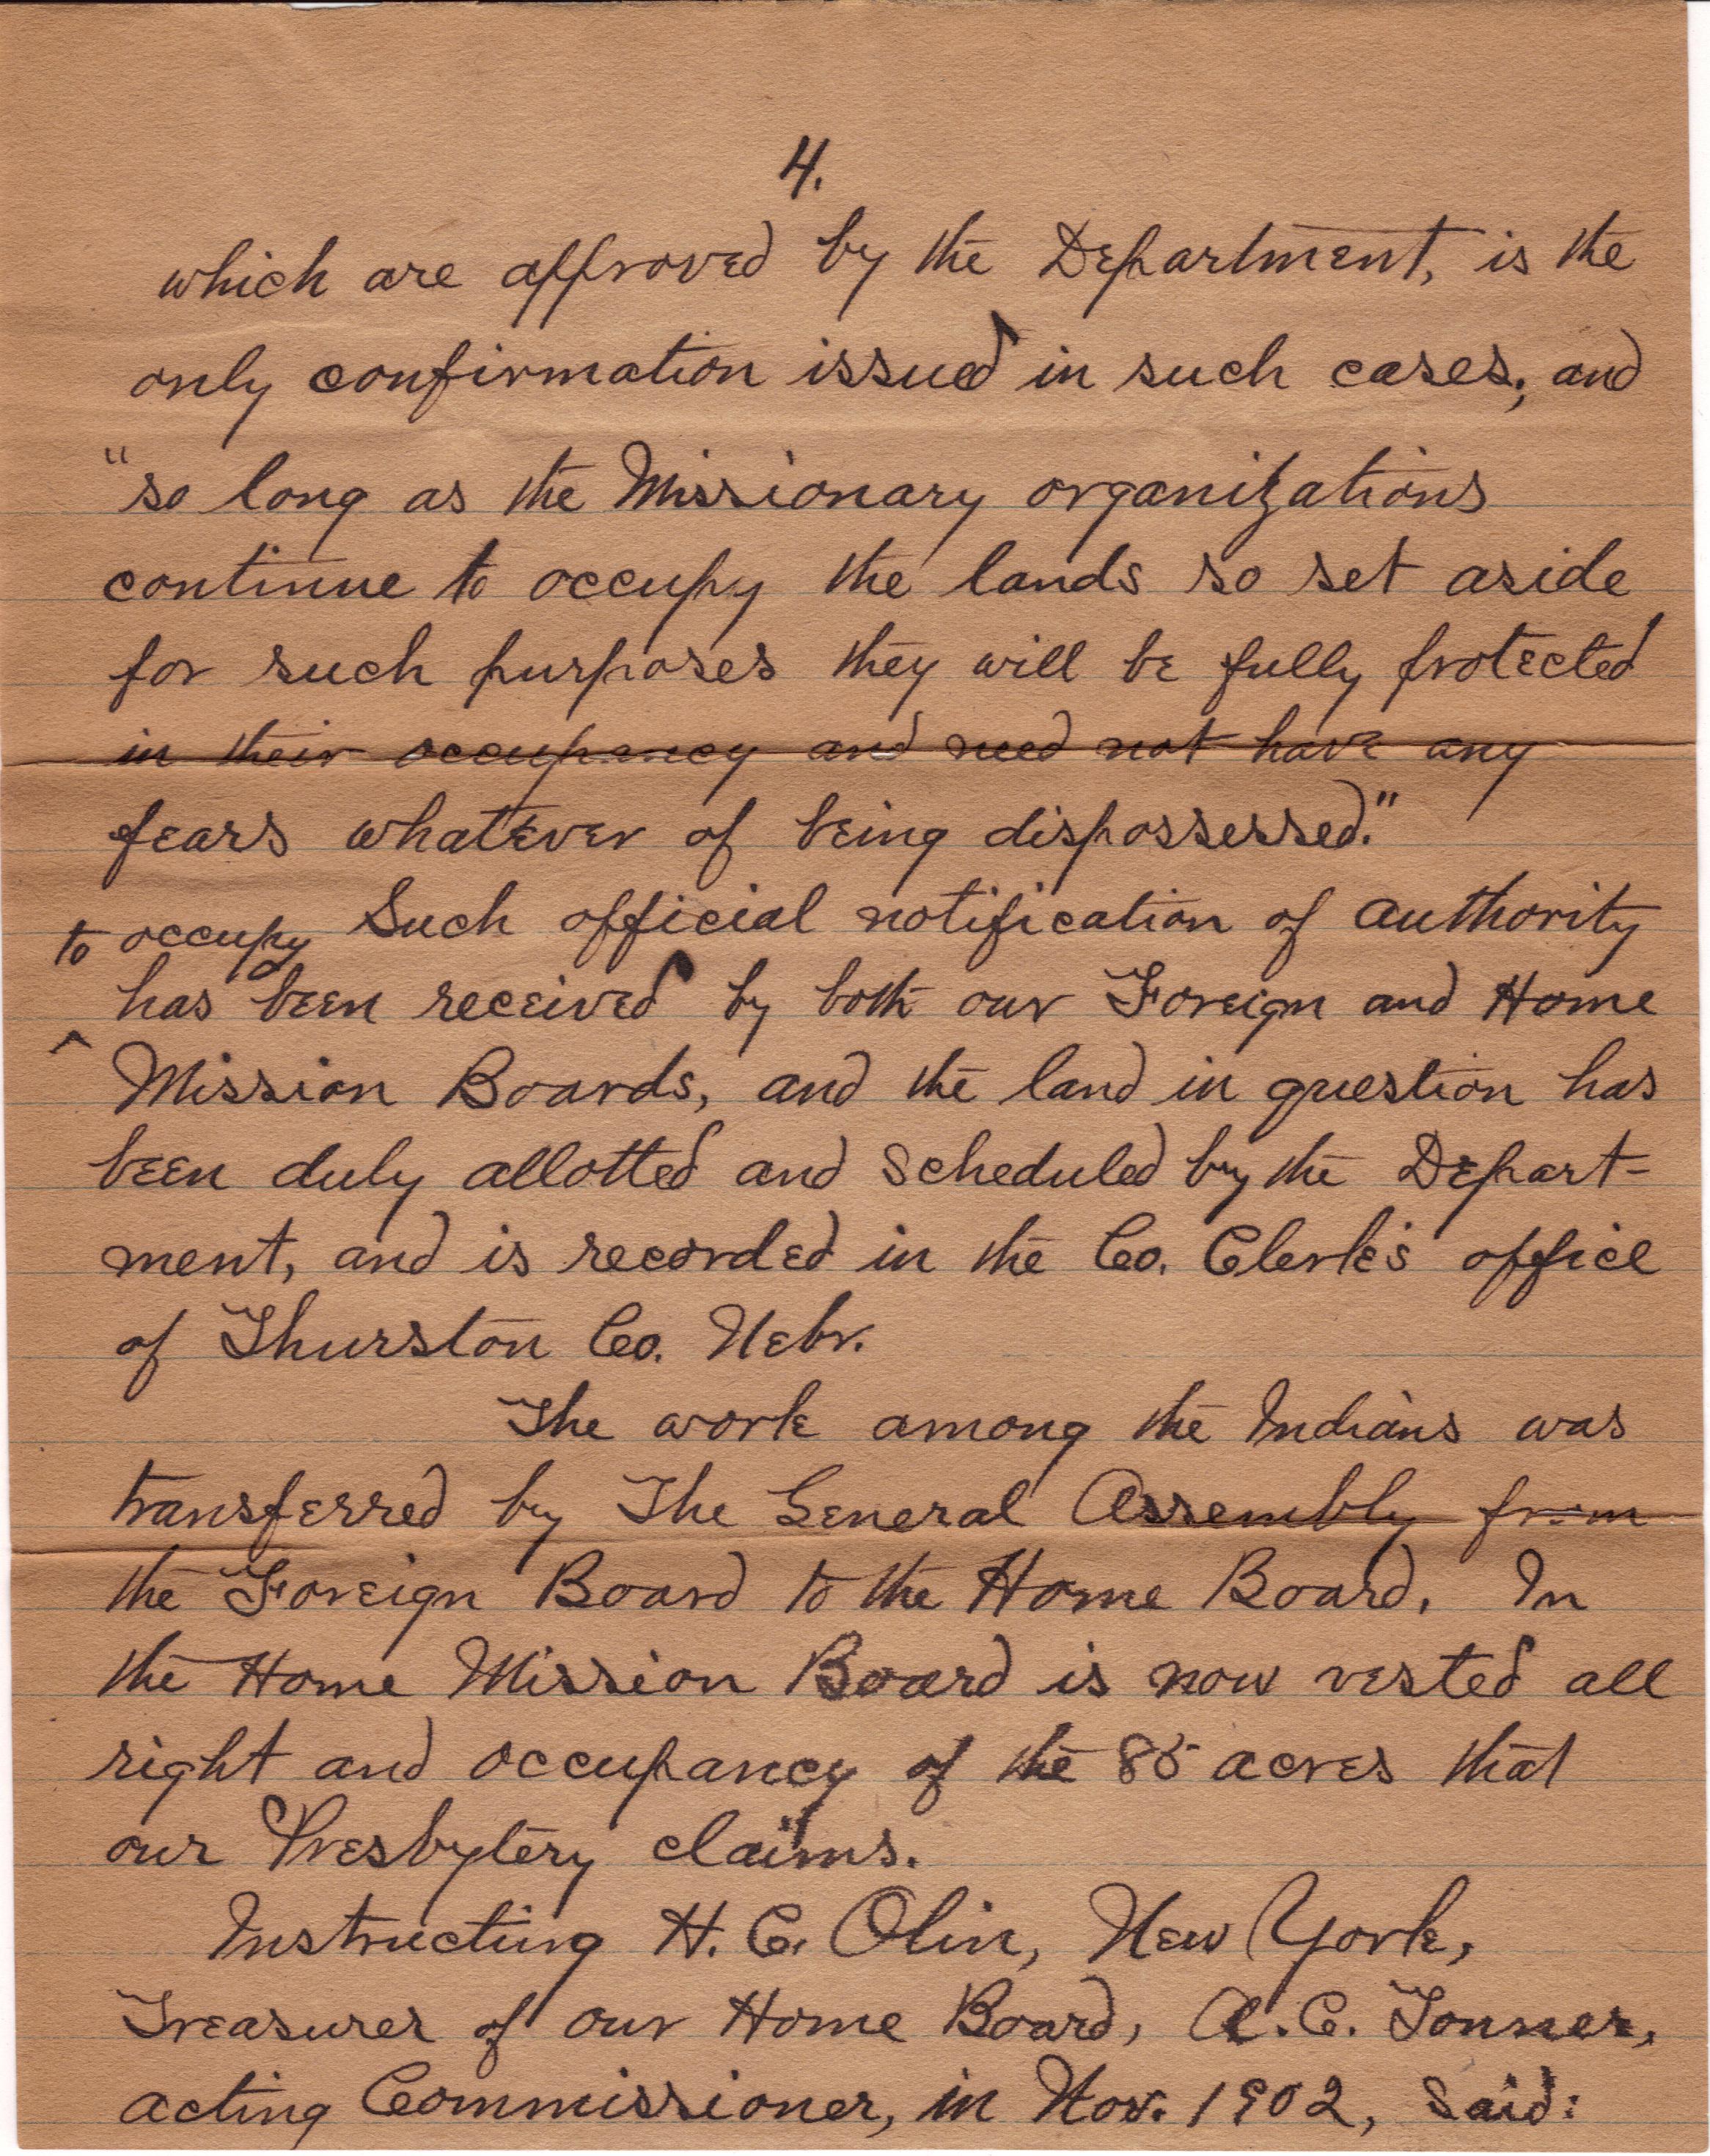 4.
which are approved by the Department, is the
only confirmation issued in such cases; and
"so long as the Missionary organizations
continue to occupy the lands so set aside
for such purposes they will be fully protected
in their occupancy and need not have any
fears whatever of being dispossessed."
to occupy Such official notification of authority
has been received by both our Foreign and Home
^ Mission Boards, and the land in question has
been duly allotted and scheduled by the Depart-
ment, and is recorded in the Co. Clerk's office
of Thurston Co. Nebr.
The work among the Indians was
transferred by The General Assembly from
the Foreign Board to the Home Board. In
the Home Mission Board is now vested all
right and occupancy of the 85 acres that
our Presbytery claims.
Instructing H. C. Olin, New York,
Treasurer of our Home Board, A. C. Tonner,
acting Commissioner, in Nov. 1902, said: